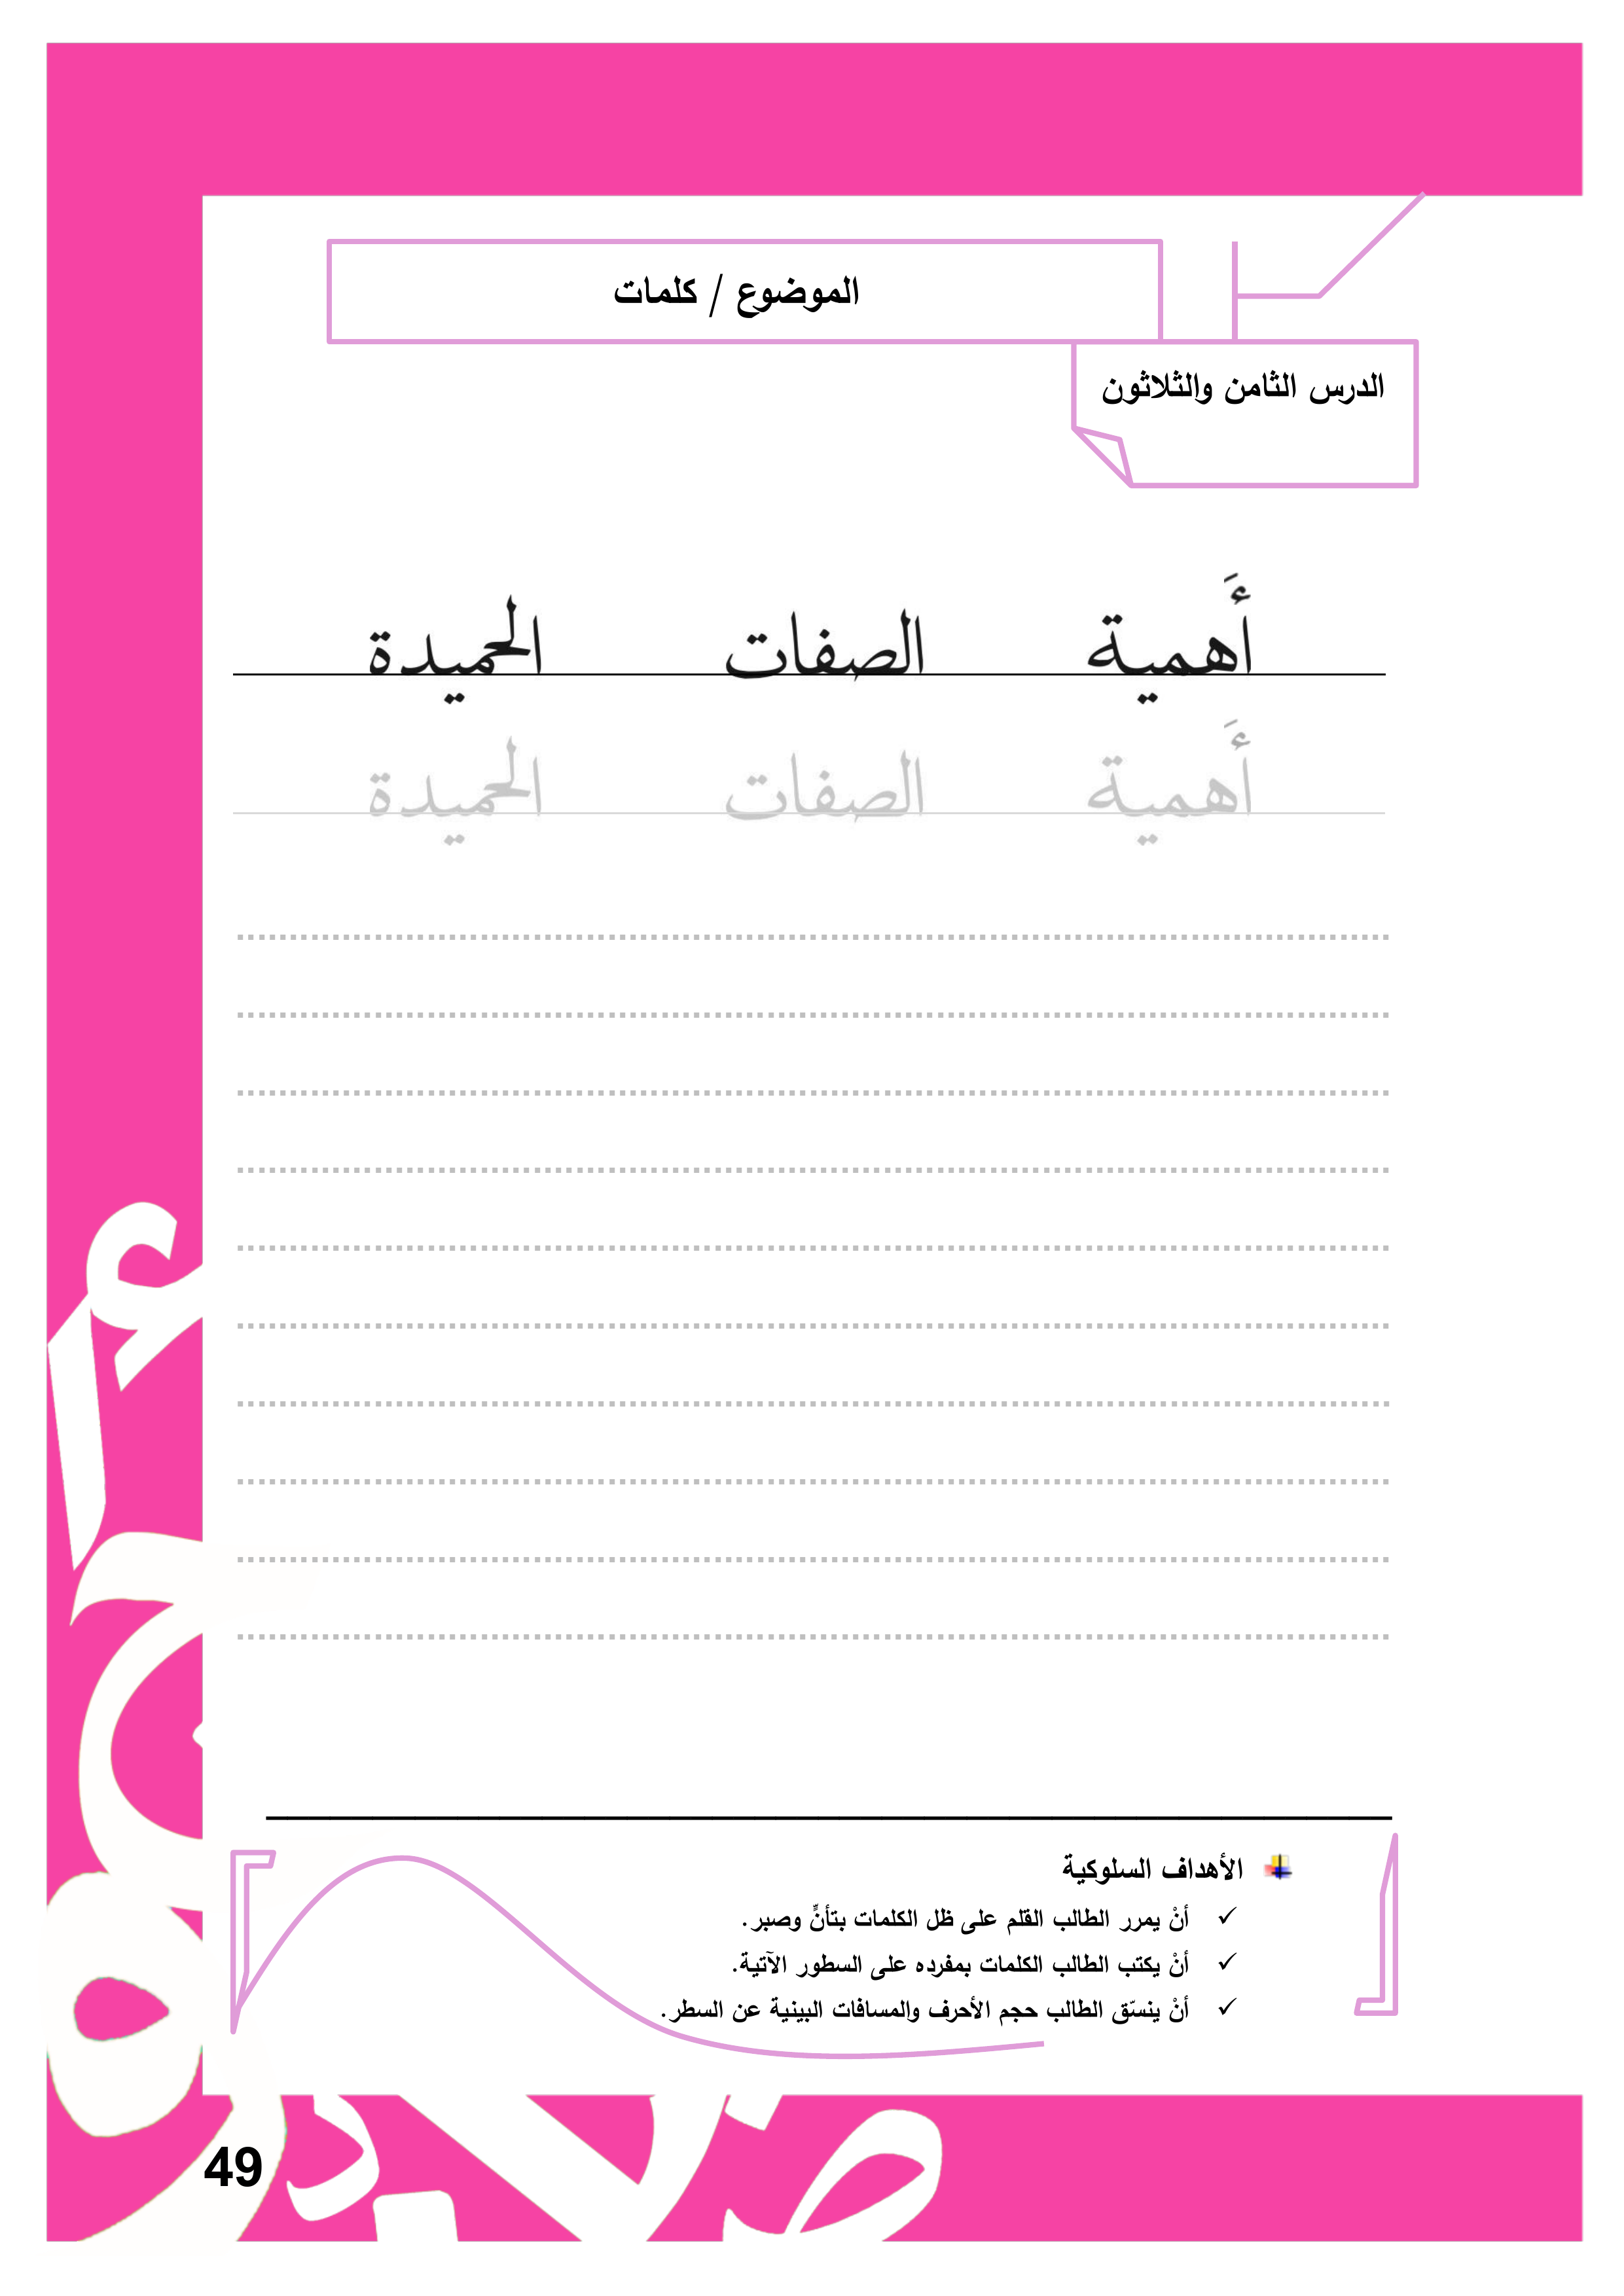 الموضوع / كلمات
الدرس الثامن والثلاثون
أَهمية الصفات الحميدة
أَهمية الصفات الحميدة
الأهداف السلوكية
✓ أنْ يمرر الطالب القلم على ظل الكلمات بتأنٍّ وصبر.
✓ أنْ يكتب الطالب الكلمات بمفرده على السطور الآتية.
✓ أنْ ينسّق الطالب حجم الأحرف والمسافات البينية عن السطر.
49